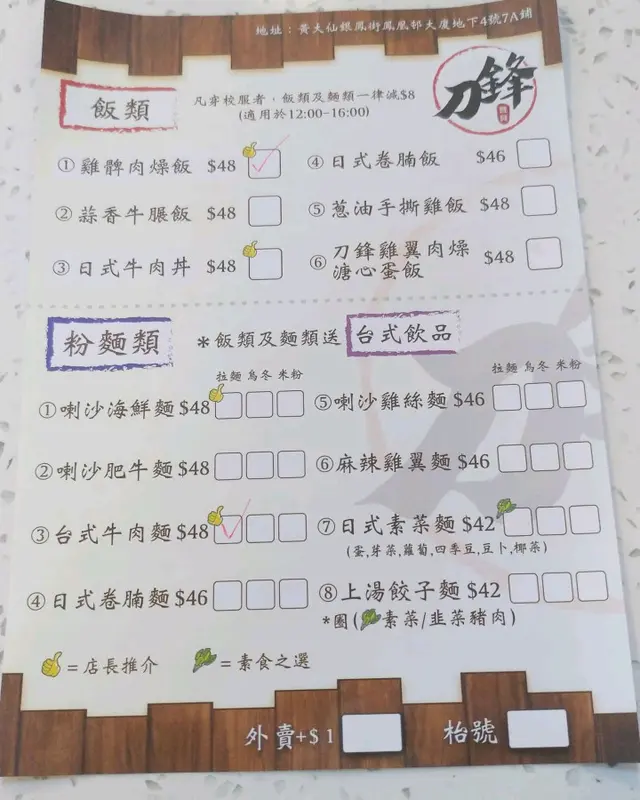 地址：黃大仙銀鳳街鳳凰邨大廈地下4號7A鋪
飯類
凡穿校服者，飯類及麵類一律減$8
(適用於12:00-16:00)
刀鋒
①雞髀肉燥飯 $48
④日式卷腩飯 $46
②蒜香牛脹飯 $48
⑤蔥油手撕雞飯 $48
③日式牛肉丼 $48
⑥刀鋒雞翼肉燥
溏心蛋飯 $48
粉麵類
*飯類及麵類送 台式飲品
拉麵 烏冬 米粉
拉麵 烏冬 米粉
①喇沙海鮮麵 $48
⑤喇沙雞絲麵 $46
②喇沙肥牛麵 $48
⑥麻辣雞翼麵 $46
③台式牛肉麵 $48
⑦日式素菜麵 $42
(蛋,芽菜,蘿蔔,四季豆,豆卜,椰菜)
④日式卷腩麵 $46
⑧上湯餃子麵 $42
*圈(素菜/韭菜豬肉)
=店長推介
=素食之選
外賣+$1
枱號